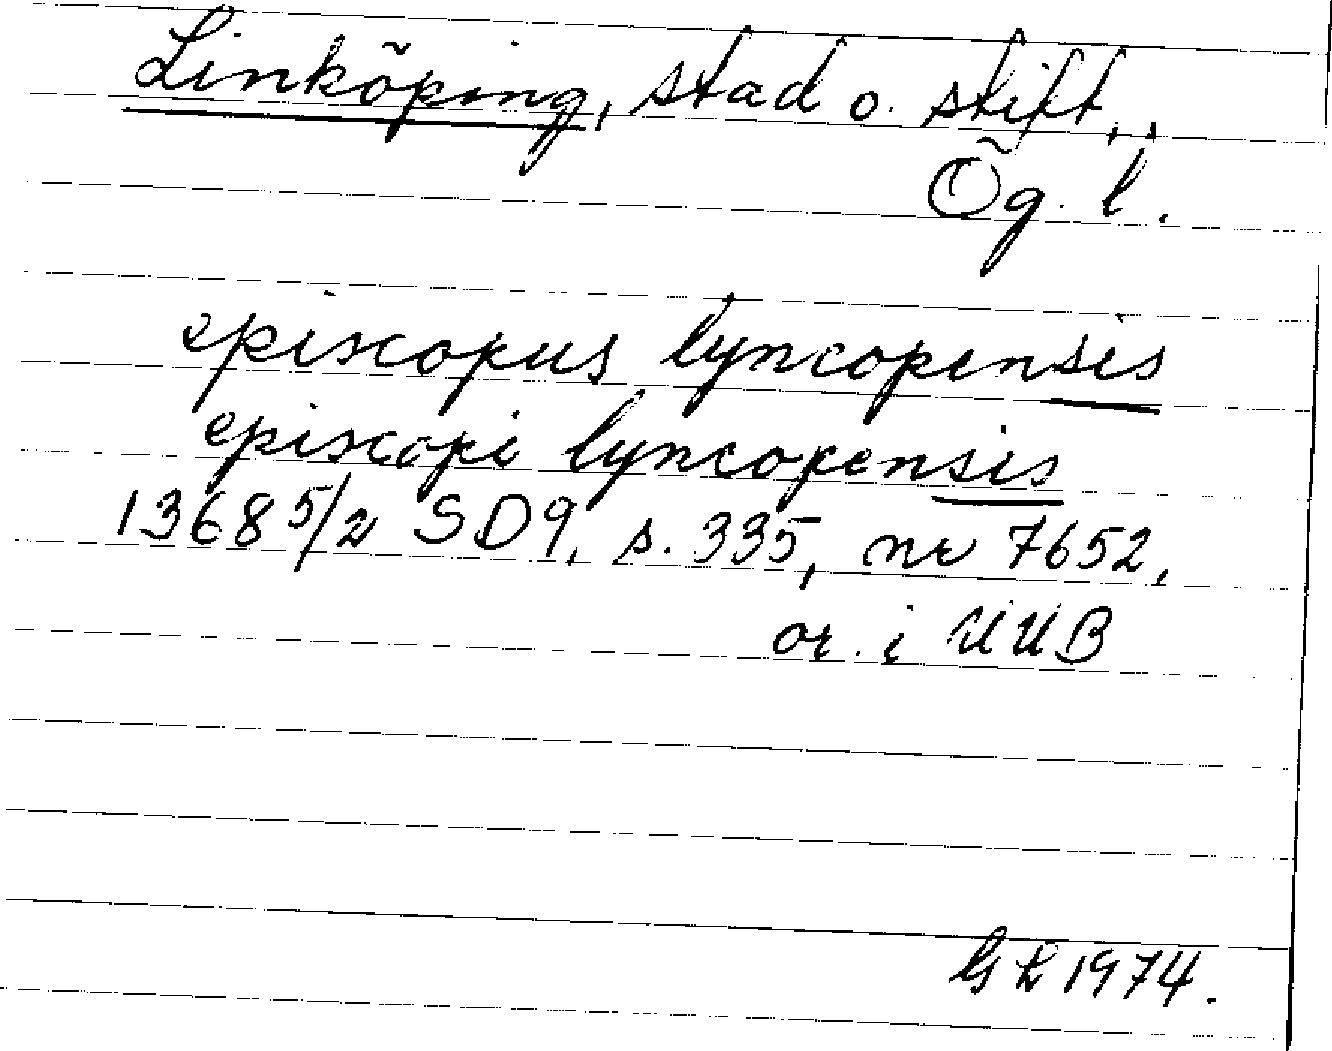 Linköping, stad o. stift,
Ög. l.
episcopus lyncopensis
episcopi lyncopensis
1368 5/2 SD9, s. 335, nr 7652,
or. i UUB
GL 1974.